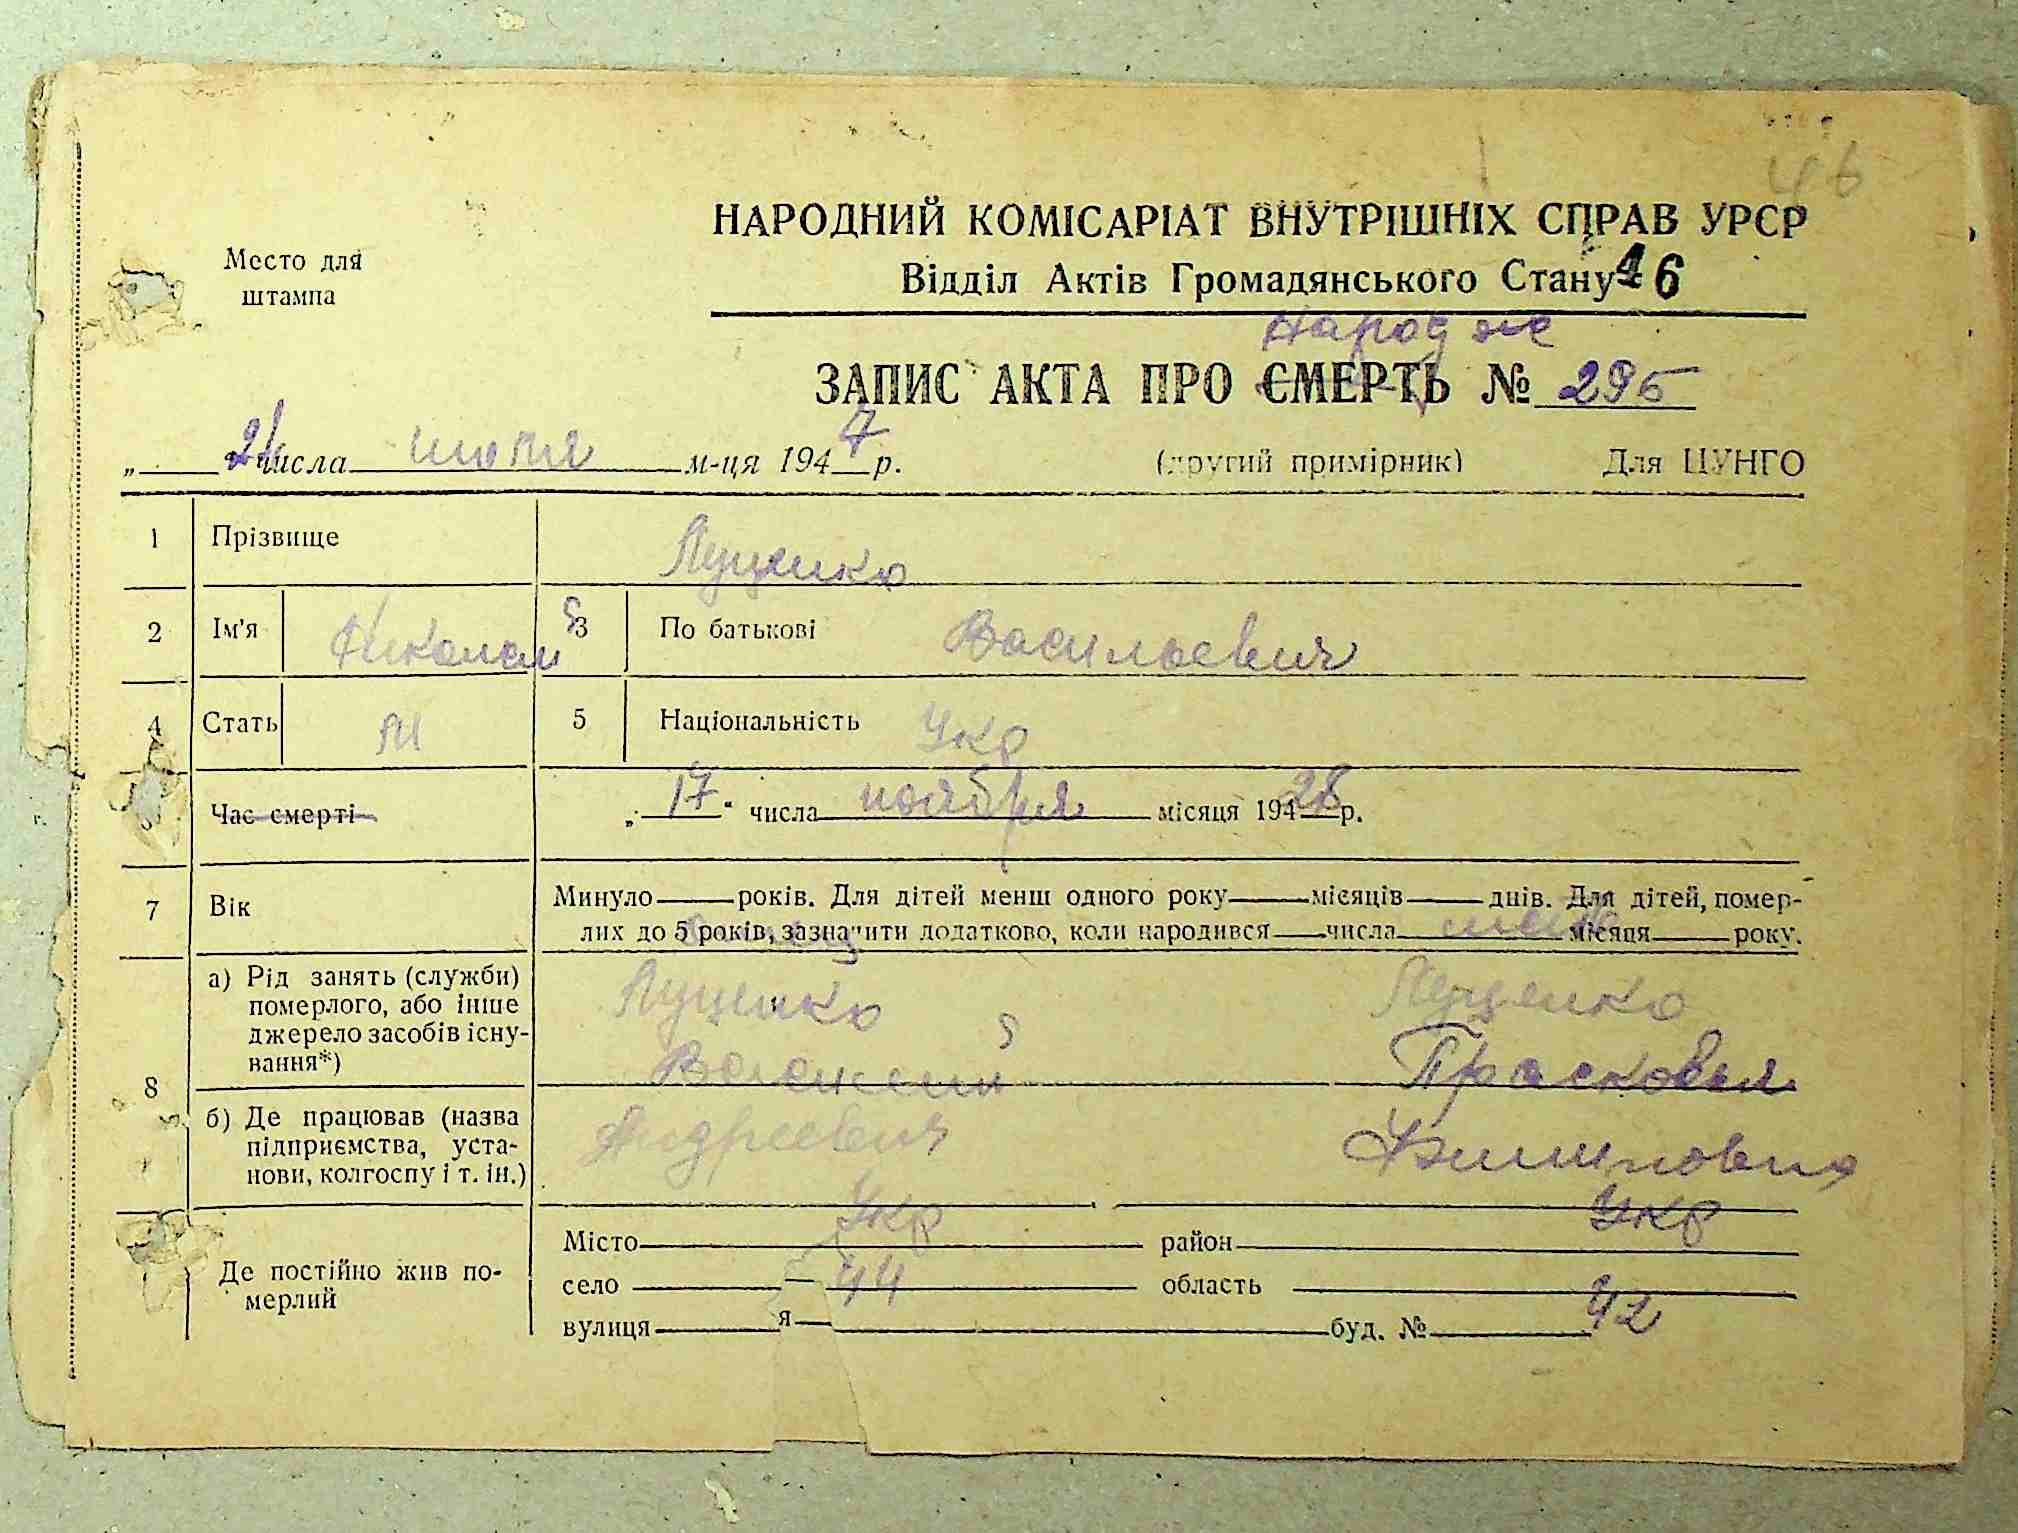 46
НАРОДНИЙ КОМІСАРІАТ ВНУТРІШНІХ СПРАВ УРСР
Место для штампа
Відділ Актів Громадянського Стану 46
Народже
ЗАПИС АКТА ПРО СМЕРТЬ № 295
„ 21 числа июля м-ця 1947 р. (другий примірник) Для ЦУНГО
1 Прізвище Луценко
2 Ім'я Николай 3 По батькові Васильевич
4 Стать М 5 Національність Укр
Час смерті „ 17 " числа ноября місяця 194 28 р.
7 Вік Минуло — років. Для дітей менш одного року — місяців — днів. Для дітей, помер-
лих до 5 років, зазначити додатково, коли народився — числа — місяця — року.
8 а) Рід занять (служби) померлого, або інше джерело засобів існування*)
Луценко Луценко
Василий Прасковья
б) Де працював (назва підприємства, установи, колгоспу і т. ін.)
Андреевич Филиповна
Укр Укр
Де постійно жив померлий
Місто район
село 44 область
вулиця буд. № 42